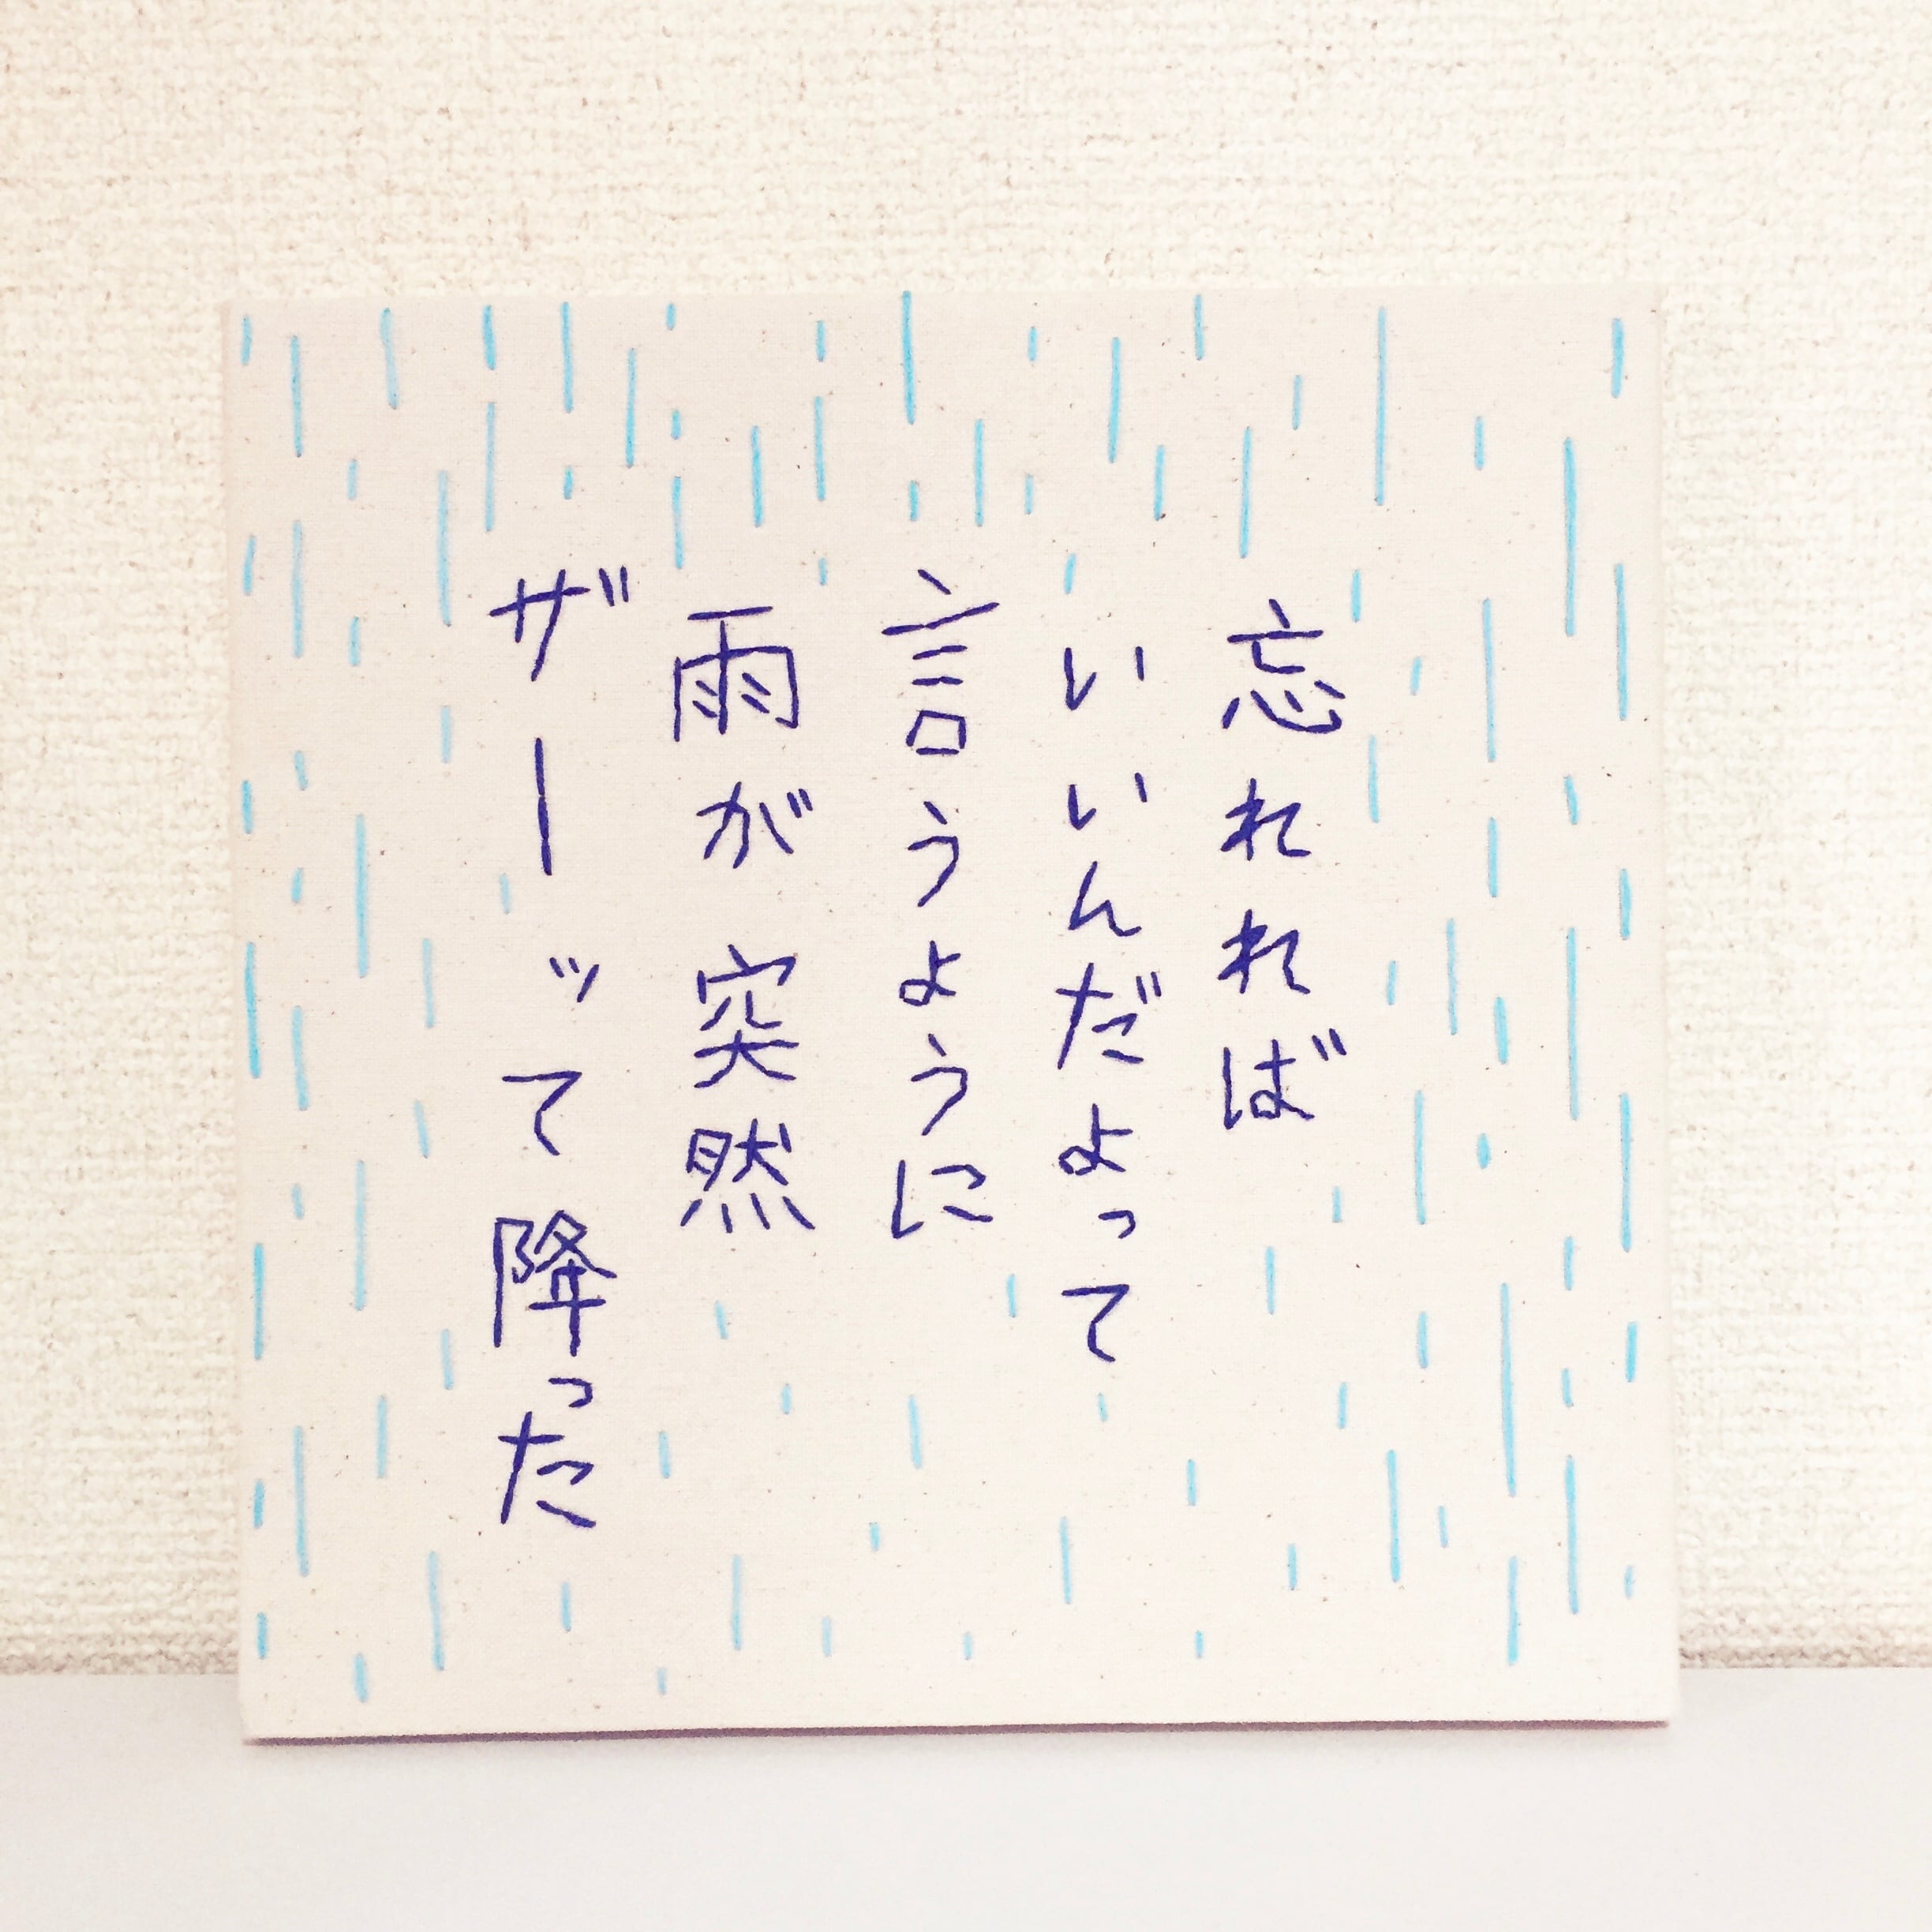 忘れれば
いいんだよって
言うように
雨が突然
ザーッて降った